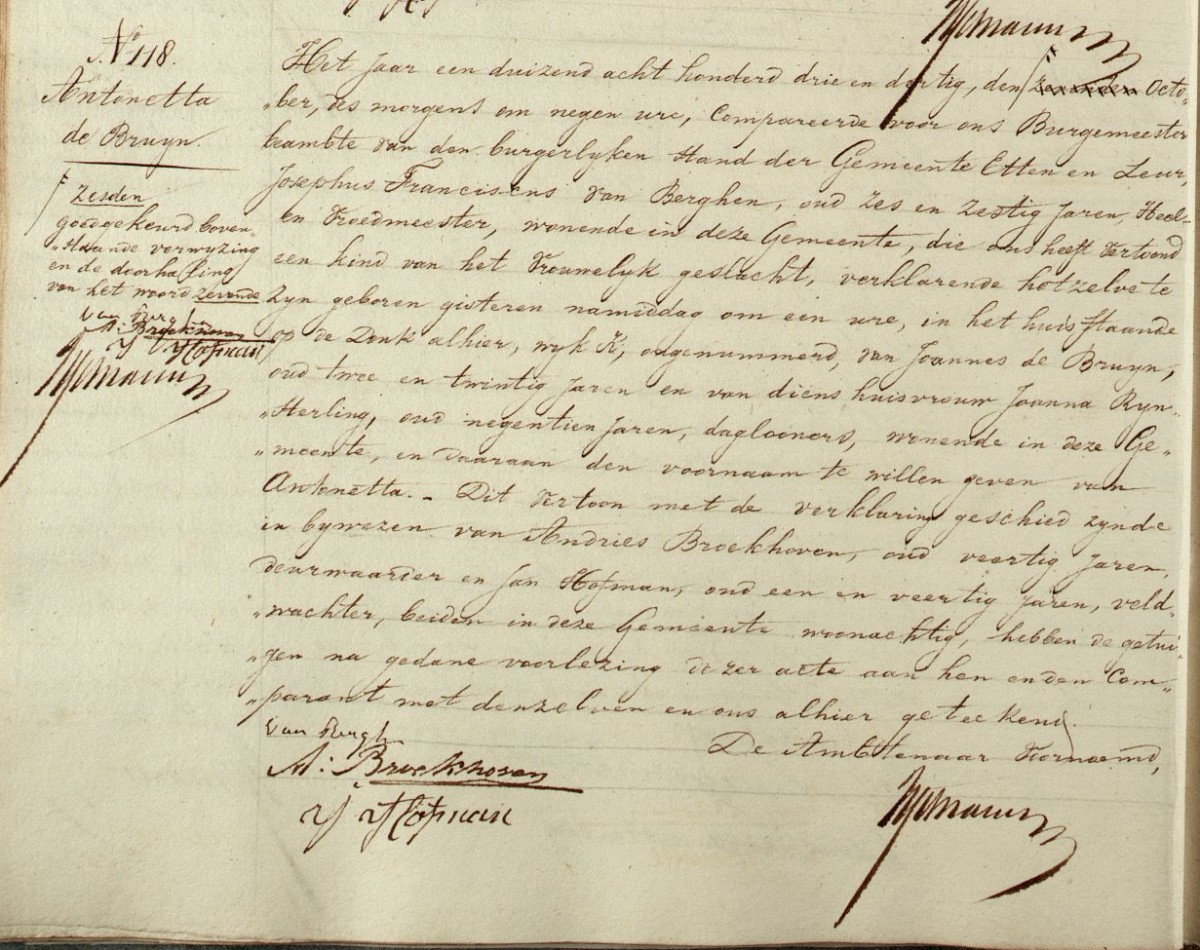 No 118.
Antonetta
de Bruyn.
zesden
goedgekeurd boven-
"staande verwyzing
en de doorhaling
van het woord zevende
Van Bergh
A: Broekhoven
J Hofman
Het jaar een duizend acht honderd drie en dertig, den Octo-
"ber, des morgens om negen ure, Compareerde voor ons Burgemeester
beambte van den burgerlyken stand der Gemeente Etten en Leur,
Josephus Franciscus van Berghen, oud zes en zestig jaren, Heel-
en Vroedmeester, wonende in deze Gemeente, die ons heeft vertoond
een kind van het vrouwelyk geslacht, verklarende hetzelve te
zyn geboren gisteren namiddag om een ure, in het huis staande
op de Donk alhier, wyk K, ongenummerd, van Joannes de Bruyn,
oud twee en twintig jaren en van diens huisvrouw Joanna Ryn-
"sterling, oud negentien jaren, daglooners, wonende in deze Ge-
"meente, en daaraan den voornaam te willen geven van
Antonetta. - Dit vertoon met de verklaring geschied zynde
in bywezen van Andries Broekhoven, oud veertig jaren,
deurwaarder en Jan Hofman, oud een en veertig jaren, veld-
"wachter, beiden in deze Gemeente woonachtig, hebben de getui-
"gen na gedane voorlezing dezer acte aan hen en den Com-
"parant met denzelven en ons alhier geteekend.
De Ambtenaar voornoemd,
Van Bergh
A: Broekhoven
J Hofman